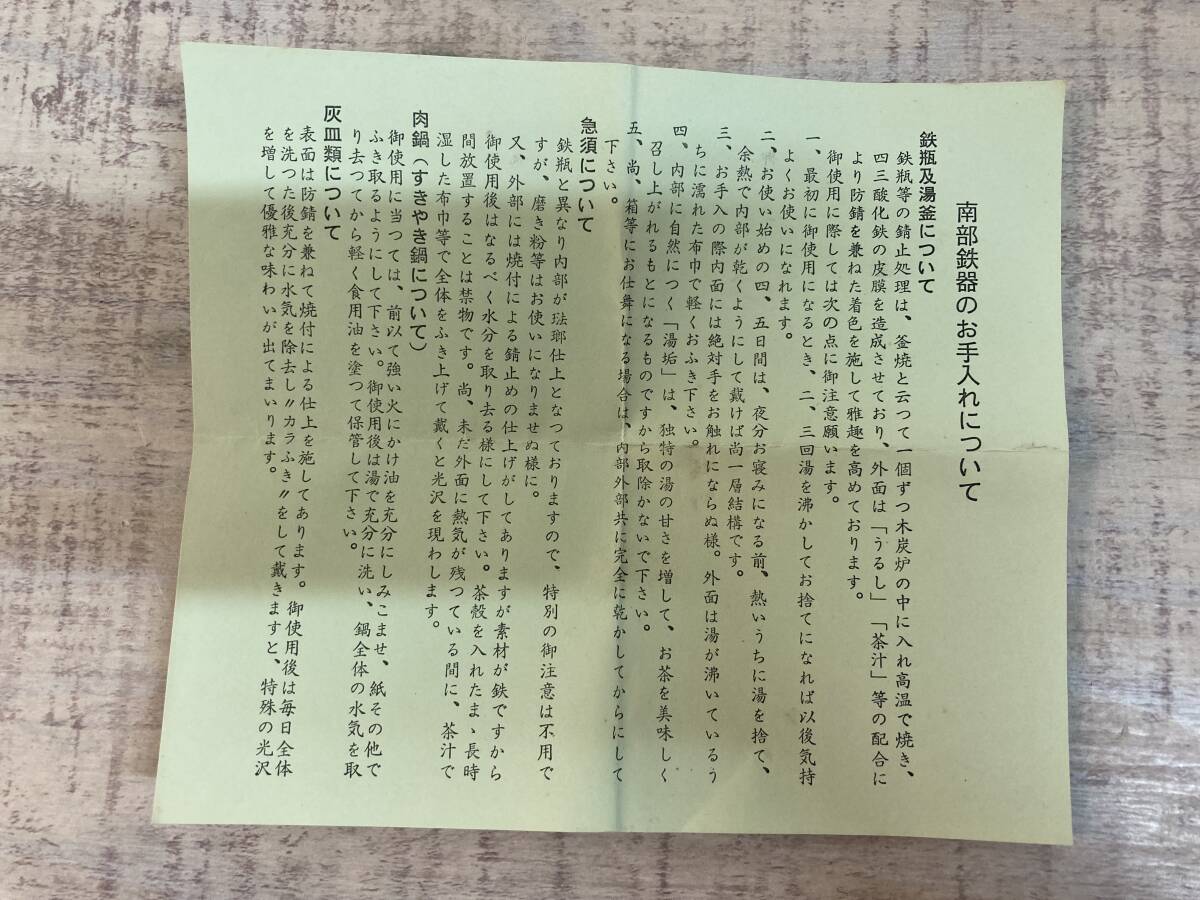 南部鉄器のお手入れについて
鉄瓶及湯釜について
鉄瓶等の錆止処理は、釜焼と云つて一個ずつ木炭炉の中に入れ高温で焼き、
四三酸化鉄の皮膜を造成させており、外面は「うるし」「茶汁」等の配合に
より防錆を兼ねた着色を施して雅趣を高めております。
御使用に際しては次の点に御注意願います。
一、最初に御使用になるとき、二、三回湯を沸かしてお捨てになれば以後気持
よくお使いになれます。
二、お使い始めの四、五日間は、夜分お寝みになる前、熱いうちに湯を捨て、
余熱で内部が乾くようにして戴けば尚一層結構です。
三、お手入の際内面には絶対手をお触れにならぬ様。外面は湯が沸いているう
ちに濡れた布巾で軽くおふき下さい。
四、内部に自然につく「湯垢」は、独特の湯の甘さを増して、お茶を美味しく
召し上がれるもとになるものですから取除かないで下さい。
五、尚、箱等にお仕舞になる場合は、内部外部共に完全に乾かしてからにして
下さい。
急須について
鉄瓶と異なり内部が琺瑯仕上となつておりますので、特別の御注意は不用で
すが、磨き粉等はお使いになりませぬ様に。
又、外部には焼付による錆止めの仕上げがしてありますが素材が鉄ですから
御使用後はなるべく水分を取り去る様にして下さい。茶殻を入れたまゝ長時
間放置することは禁物です。尚、未だ外面に熱気が残つている間に、茶汁で
湿した布巾等で全体をふき上げて戴くと光沢を現わします。
肉鍋(すきやき鍋について)
御使用に当つては、前以て強い火にかけ油を充分にしみこませ、紙その他で
ふき取るようにして下さい。御使用後は湯で充分に洗い、鍋全体の水気を取
り去つてから軽く食用油を塗つて保管して下さい。
灰皿類について
表面は防錆を兼ねて焼付による仕上を施してあります。御使用後は毎日全体
を洗つた後充分に水気を除去し〃カラふき〃をして戴きますと、特殊の光沢
を増して優雅な味わいが出てまいります。